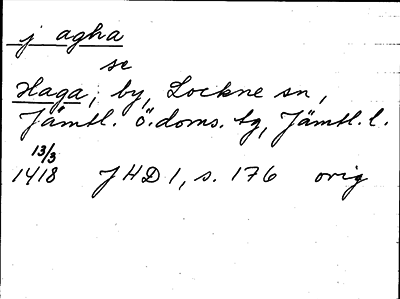 j agha
se
Haga, by, Lockne sn,
Jämtl. ö. doms. tg, Jämtl. l.
13/3
1418 JHD 1, s. 176 orig